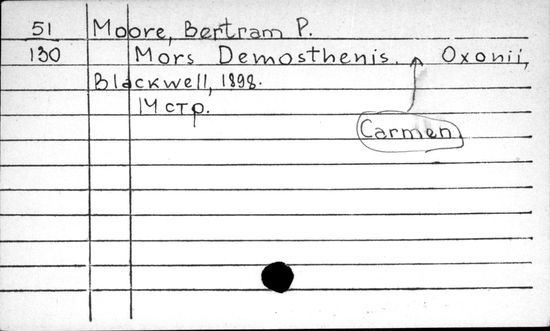 51 Moore, Bertram P.
130 Mors Demosthenis. Oxonii,
Blackwell, 1898.
14 стр.
Carmen